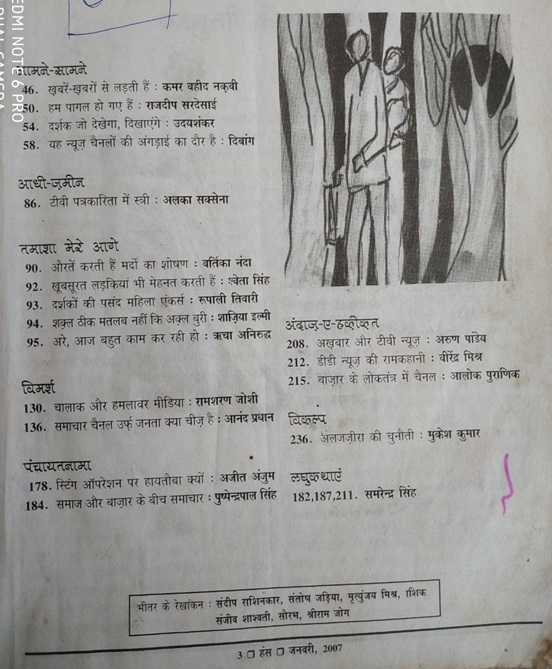 आमने-सामने
46. ख़बरें-ख़बरों से लड़ती हैं : कमर वहीद नक़वी
50. हम पागल हो गए हैं : राजदीप सरदेसाई
54. दर्शक जो देखेगा, दिखाएंगे : उदयशंकर
58. यह न्यूज़ चैनलों की अंगड़ाई का दौर है : दिबांग
आधी-ज़मीन
86. टीवी पत्रकारिता में स्त्री : अलका सक्सेना
तमाशा मेरे आगे
90. औरतें करती हैं मर्दों का शोषण : वर्तिका नंदा
92. खूबसूरत लड़कियां भी मेहनत करती हैं : श्वेता सिंह
93. दर्शकों की पसंद महिला एंकर्स : रूपाली तिवारी
94. शक्ल ठीक मतलब नहीं कि अक्ल बुरी : शाज़िया इल्मी
95. अरे, आज बहुत काम कर रही हो : ऋचा अनिरुद्ध
विमर्श
130. चालाक और हमलावर मीडिया : रामशरण जोशी
136. समाचार चैनल उर्फ़ जनता क्या चीज़ है : आनंद प्रधान
पंचायतनामा
178. स्टिंग ऑपरेशन पर हायतौबा क्यों : अजीत अंजुम
184. समाज और बाज़ार के बीच समाचार : पुष्पेन्द्रपाल सिंह
अंदाज़-ए-हक़ीक़त
208. अख़बार और टीवी न्यूज़ : अरुण पांडेय
212. डीडी न्यूज़ की रामकहानी : वीरेंद्र मिश्र
215. बाज़ार के लोकतंत्र में चैनल : आलोक पुराणिक
विकल्प
236. अलजज़ीरा की चुनौती : मुकेश कुमार
लघुकथाएं
182,187,211. समरेन्द्र सिंह
भीतर के रेखांकन : संदीप राशिनकार, संतोष जड़िया, मृत्युंजय मिश्र, रशिक
संजीव शाश्वती, सौरभ, श्रीराम जोग
3 □ हंस □ जनवरी, 2007
REDMI NOTE 6 PRO
DUAL CAMERA